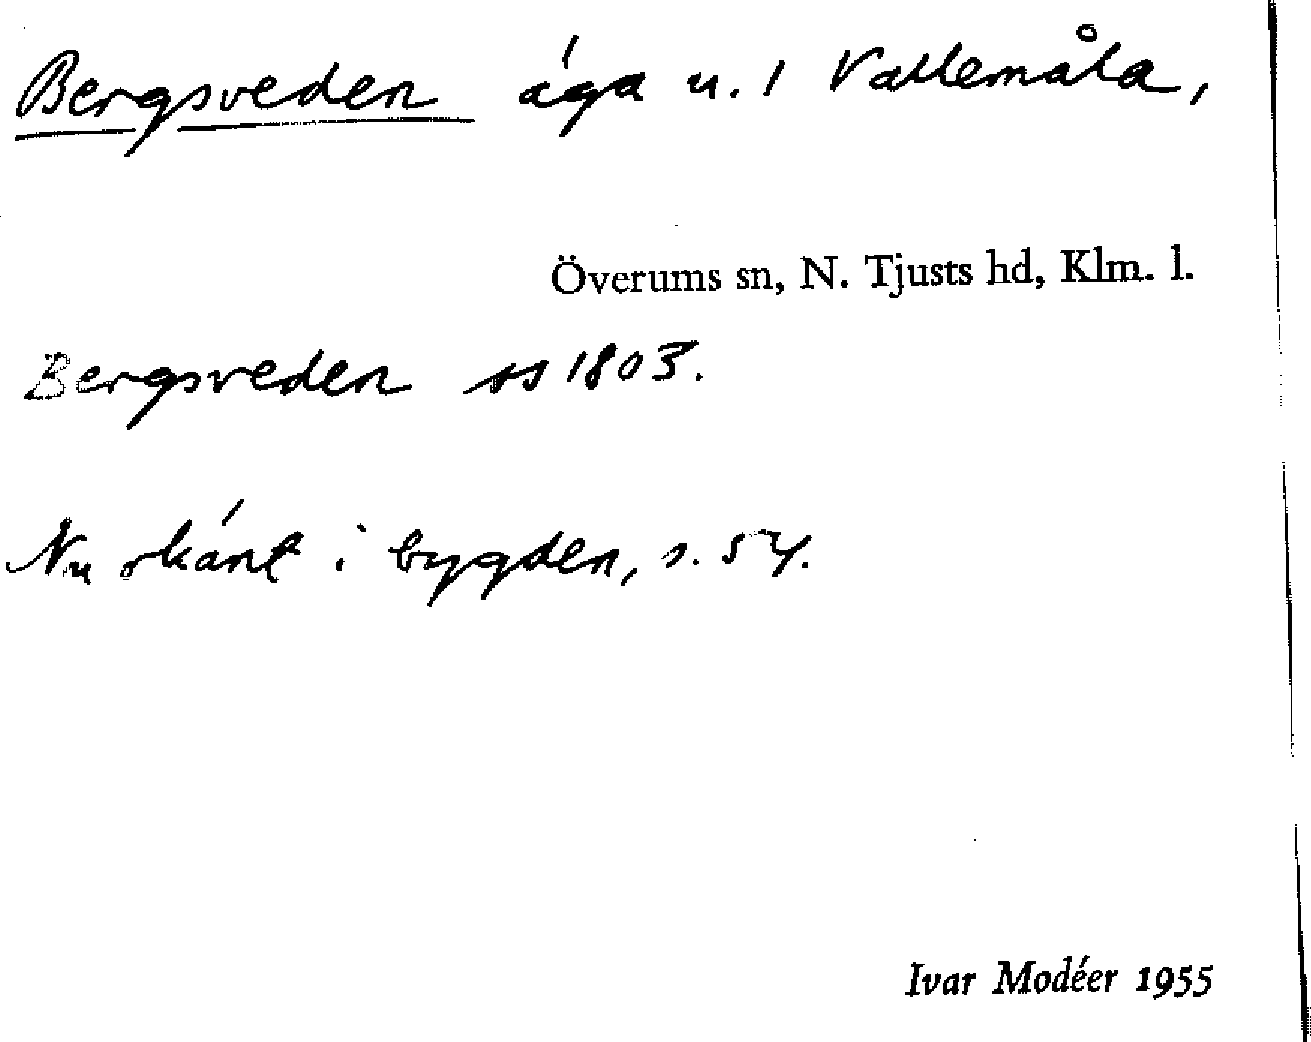 Bergsveden äga u. 1 Vallemåla,
Överums sn, N. Tjusts hd, Klm. l.
Bergsveden ss 1803.
Nu okänt i bygden, s. 54.
Ivar Modéer 1955